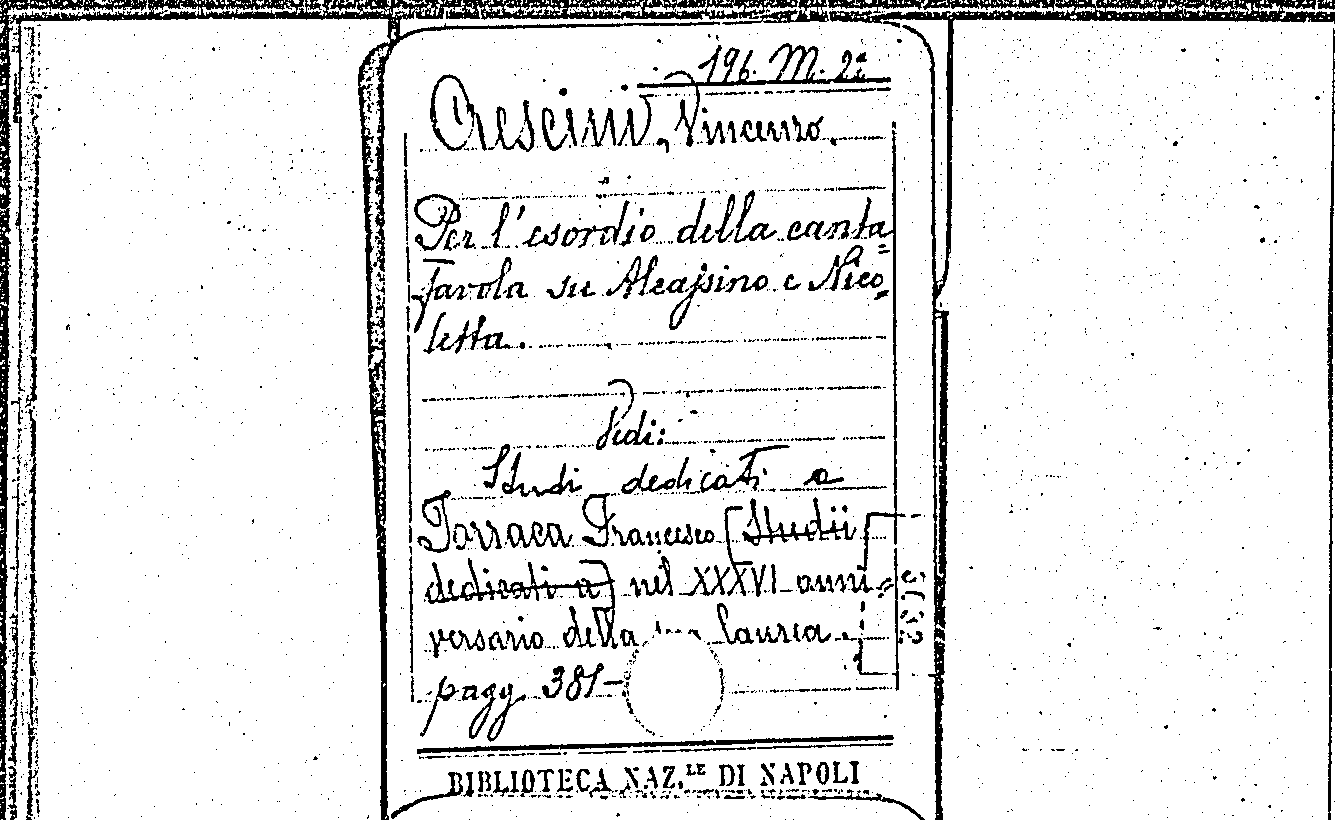 196. M. 2ª
Crescini, Vincenzo.
Per l'esordio della canta=
favola su Alcassino e Nico=
letta.
Vedi:
Studi dedicati a
Torraca Francesco [Studii
dedicati a] nel XXXVI anni=
versario della sua laurea.
pagg. 381-
BIBLIOTECA NAZ.LE DI NAPOLI